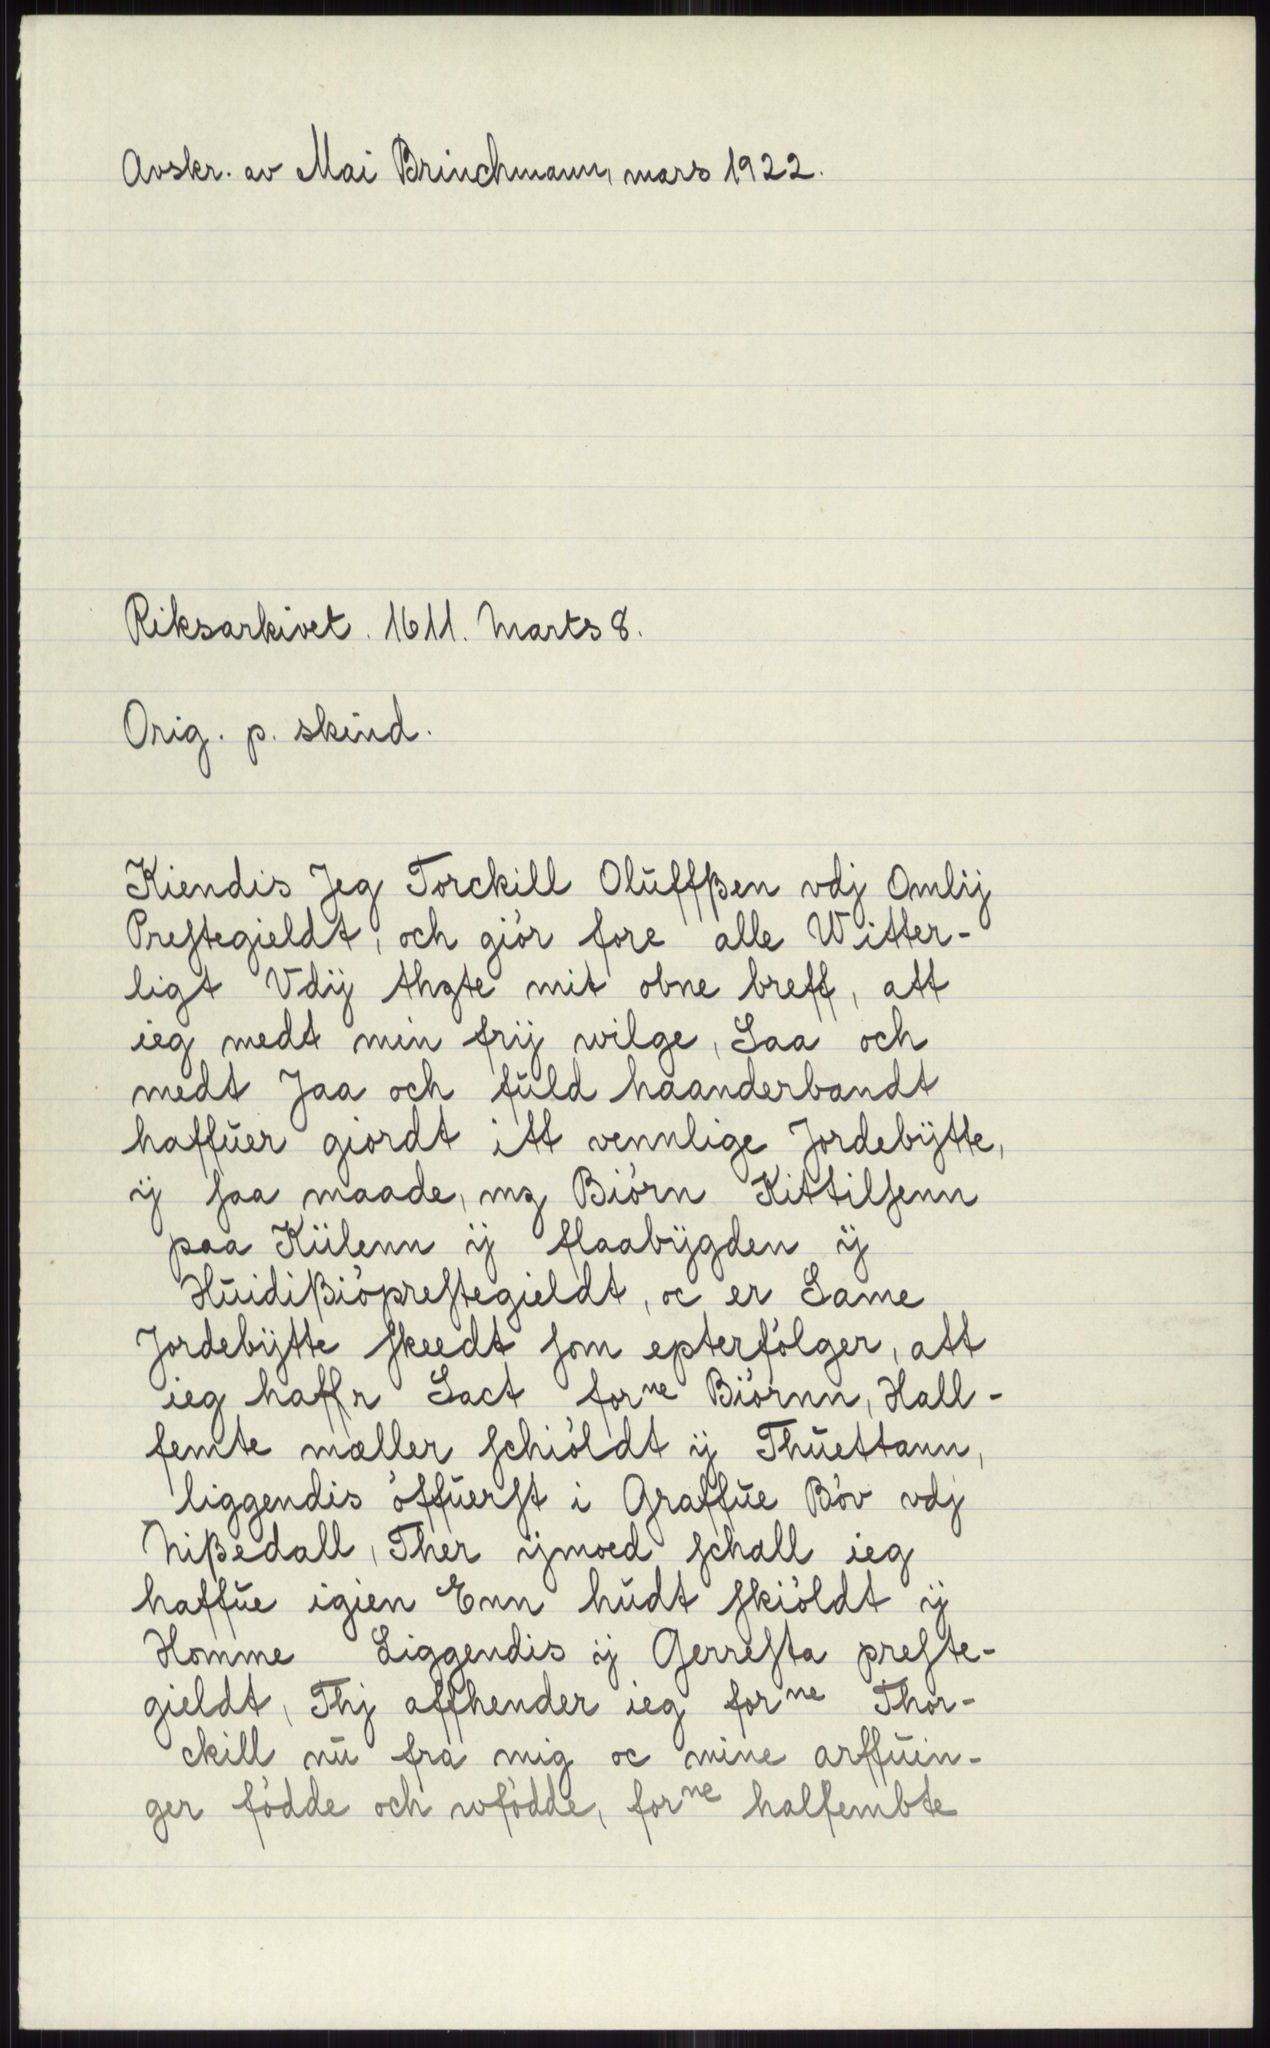 Avskr. av Mai Brinchmann, mars 1922.
Riksarkivet. 1611. Marts 8.
Orig. p. skind.
Kiendis Jeg Torckill Olŭffßen vdj Omlij
Prestegieldt, och giór fore alle Witter-
ligt Vdij thzte mit obne breff, att
ieg medt min frij wilge, Saa och
medt Jaa och fŭld haanderbandt
haffŭer giordt itt vennlige Jordebÿtte,
ij saa maade, mz Biórn Kittilsenn
paa Kiilenn ij flaabÿgden ÿ
Hŭidißióprestegieldt, oc er Same
Jordebÿtte skeedt som epterfólger, att
ieg haffr Sact forne Biórnn, Hall-
femte mæller schióldt ij Thŭettann,
liggendis óffŭerst i Graffŭe Bóv vdj
Nißedall, Ther ijmoed schall ieg
haffŭe igien Enn hŭdt skióldt ij
Homme Liggendis ij Gerresta preste-
gieldt, Thj affhender ieg forne Thor-
ckill nŭ fra mig oc mine arffŭin-
ger fódde och wfódde, forne halfembte